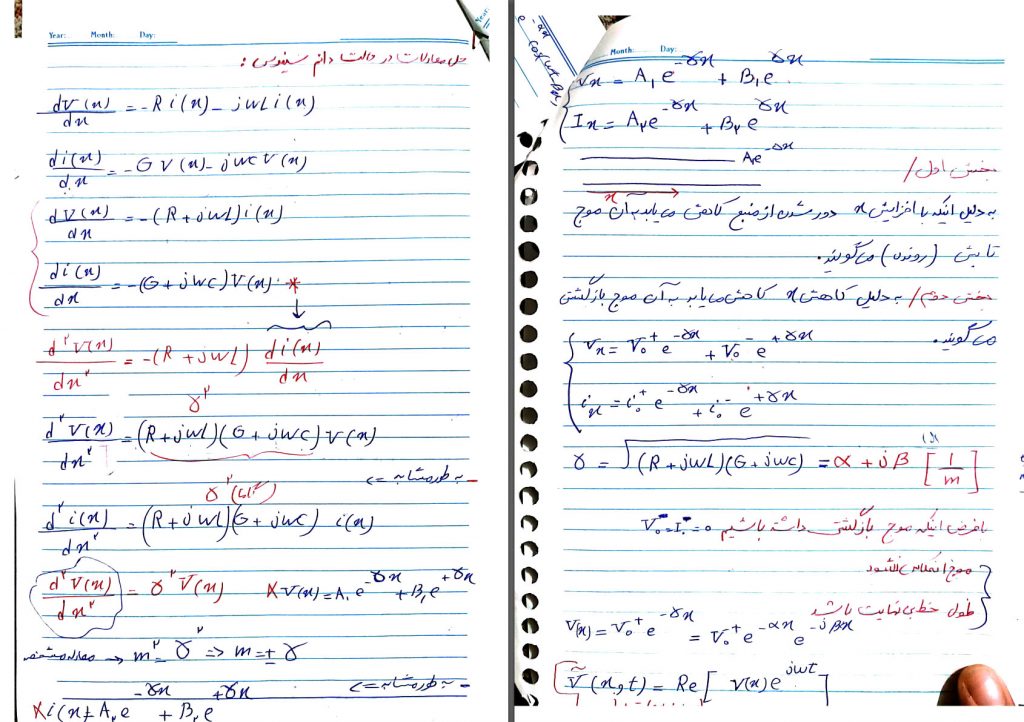 Year: Month: Day:
حل معادلات در حالت دائم سینوسی :
dV(x)/dx = -R i(x) - jωL i(x)
di(x)/dx = -G V(x) - jωC V(x)
dV(x)/dx = -(R + jωL) i(x)
di(x)/dx = -(G + jωC) V(x) *
d²V(x)/dx² = -(R + jωL) di(x)/dx
γ²
d²V(x)/dx² = (R + jωL)(G + jωC) V(x)
- به طور مشابه =>
γ² (گاما)
d²i(x)/dx² = (R + jωL)(G + jωC) i(x)
d²V(x)/dx² = γ² V(x) * V(x) = A₁e^-γx + B₁e^+γx
معادله مشخصه → m² = γ² => m = ± γ
- به طور مشابه =>
* i(x) = A₂e^-γx + B₂e^+γx
Year:
e^-αx
cos(ωt - βx)
Month: Day:
Vx = A₁e^-γx + B₁e^γx
Ix = A₂e^-γx + B₂e^γx
Ae^-αx
بخش اول /
x
به دلیل اینکه با افزایش x دور شدن از منبع کاهش می یابد به آن موج
تابش (رونده) می گویند.
بخش دوم / به دلیل کاهش x کاهش می یابد به آن موج بازگشتی
می گویند.
Vx = V₀⁺ e^-γx + V₀⁻ e^+γx
ix = i₀⁺ e^-γx + i₀⁻ e^+γx
γ = √(R + jωL)(G + jωC) = α + jβ [1/m]
با فرض اینکه موج بازگشتی داشته باشیم V₀⁻ = I₀⁻ = 0
موج انعکاس نشود
طول خط بی نهایت باشد
V(x) = V₀⁺ e^-γx = V₀⁺ e^-αx e^-jβx
Ṽ(x,t) = Re[ V(x) e^jωt ]